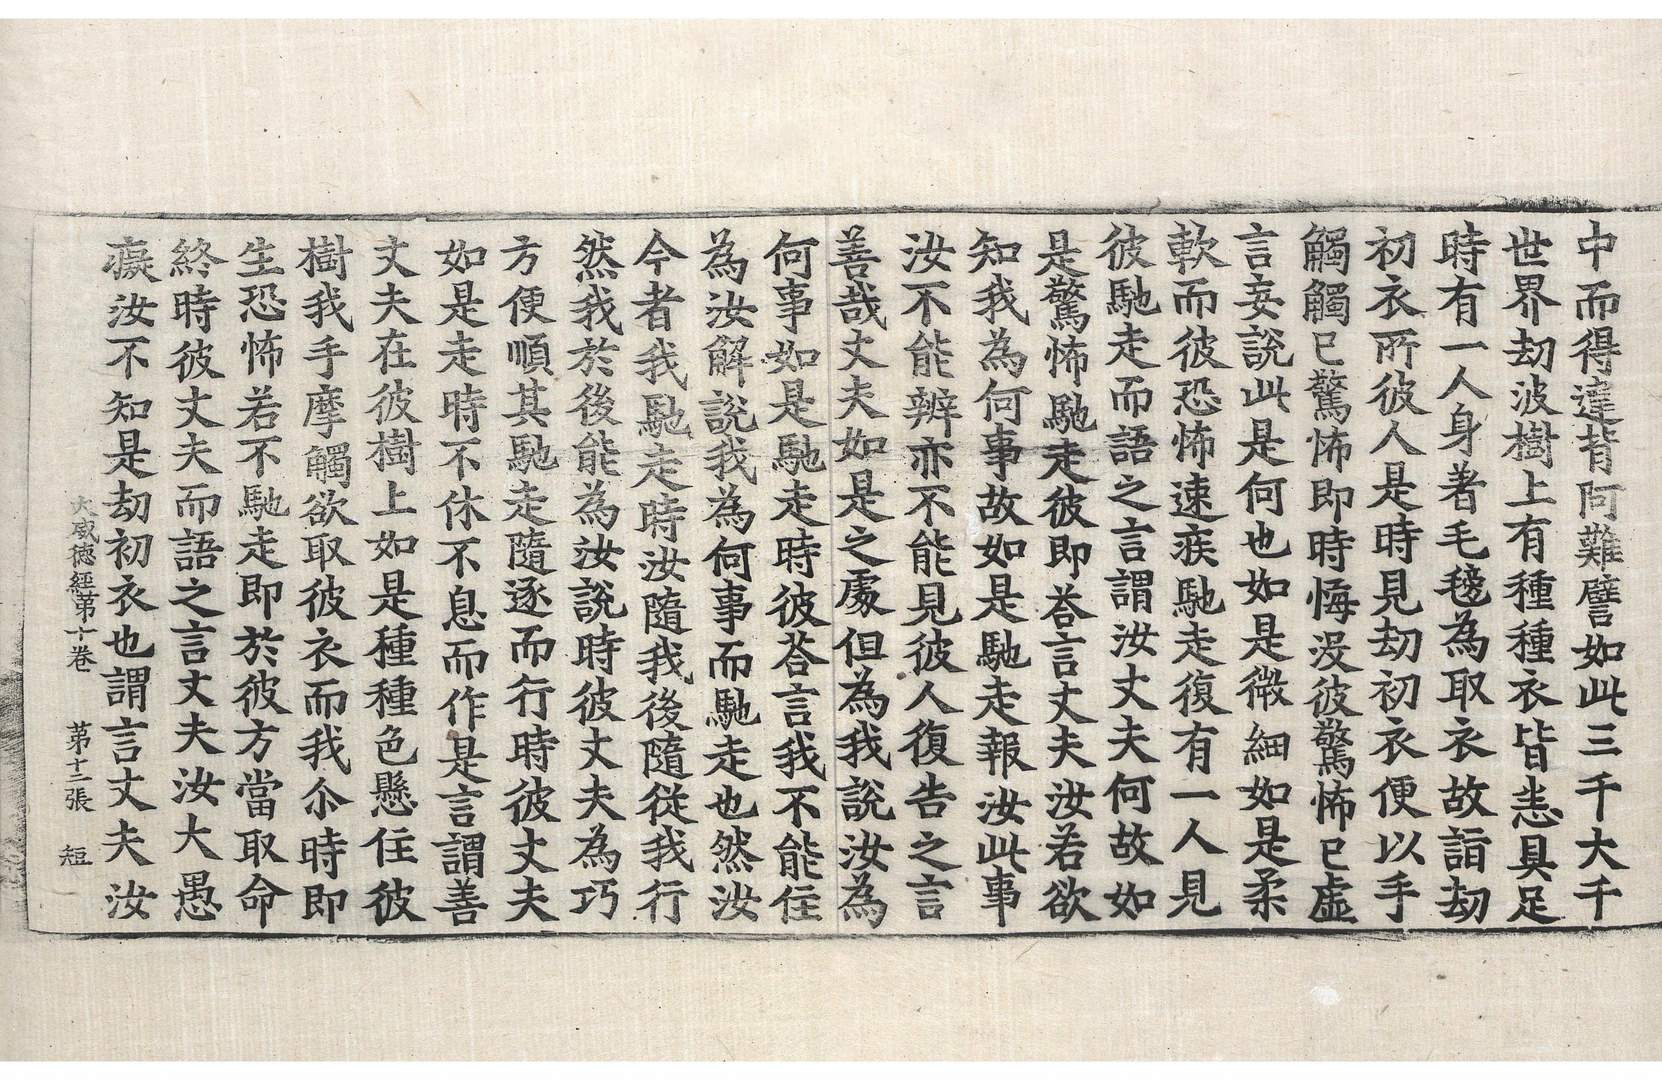 中而得違背阿難譬如此三千大千
世界劫波樹上有種種衣皆悉具足
時有一人身著毛㲲為取衣故詣劫
初衣所彼人是時見劫初衣便以手
觸觸已驚怖即時悔没彼驚怖已虛
言妄說此是何也如是微細如是柔
軟而彼恐怖速疾馳走復有一人見
彼馳走而語之言謂汝丈夫何故如
是驚怖馳走彼即荅言丈夫汝若欲
知我為何事故如是馳走報汝此事
汝不能辨亦不能見彼人復告之言
善哉丈夫如是之處但為我說汝為
何事如是馳走時彼荅言我不能住
為汝解說我為何事而馳走也然汝
今者我馳走時汝隨我後隨從我行
然我於後能為汝說時彼丈夫為巧
方便順其馳走隨逐而行時彼丈夫
如是走時不休不息而作是言謂善
丈夫在彼樹上如是種種色懸住彼
樹我手摩觸欲取彼衣而我尒時即
生恐怖若不馳走即於彼方當取命
終時彼丈夫而語之言丈夫汝大愚
癡汝不知是劫初衣也謂言丈夫汝
大威德經第十卷 第十二張 短